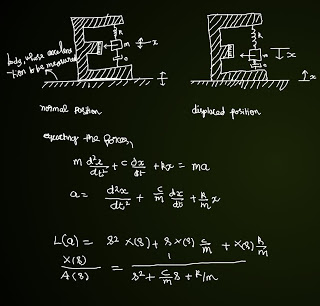 k
m
x
body, whose accelera
-tion to be measured
k
m
x
x
normal position
displaced position
equating the forces,
m d²x/dt² + c dx/dt + kx = ma
a = d²x/dt² + c/m dx/dt + k/m x
L(a) = s² X(s) + s X(s) c/m + X(s) k/m
X(s)/A(s) = 1/(s² + c/m s + k/m)